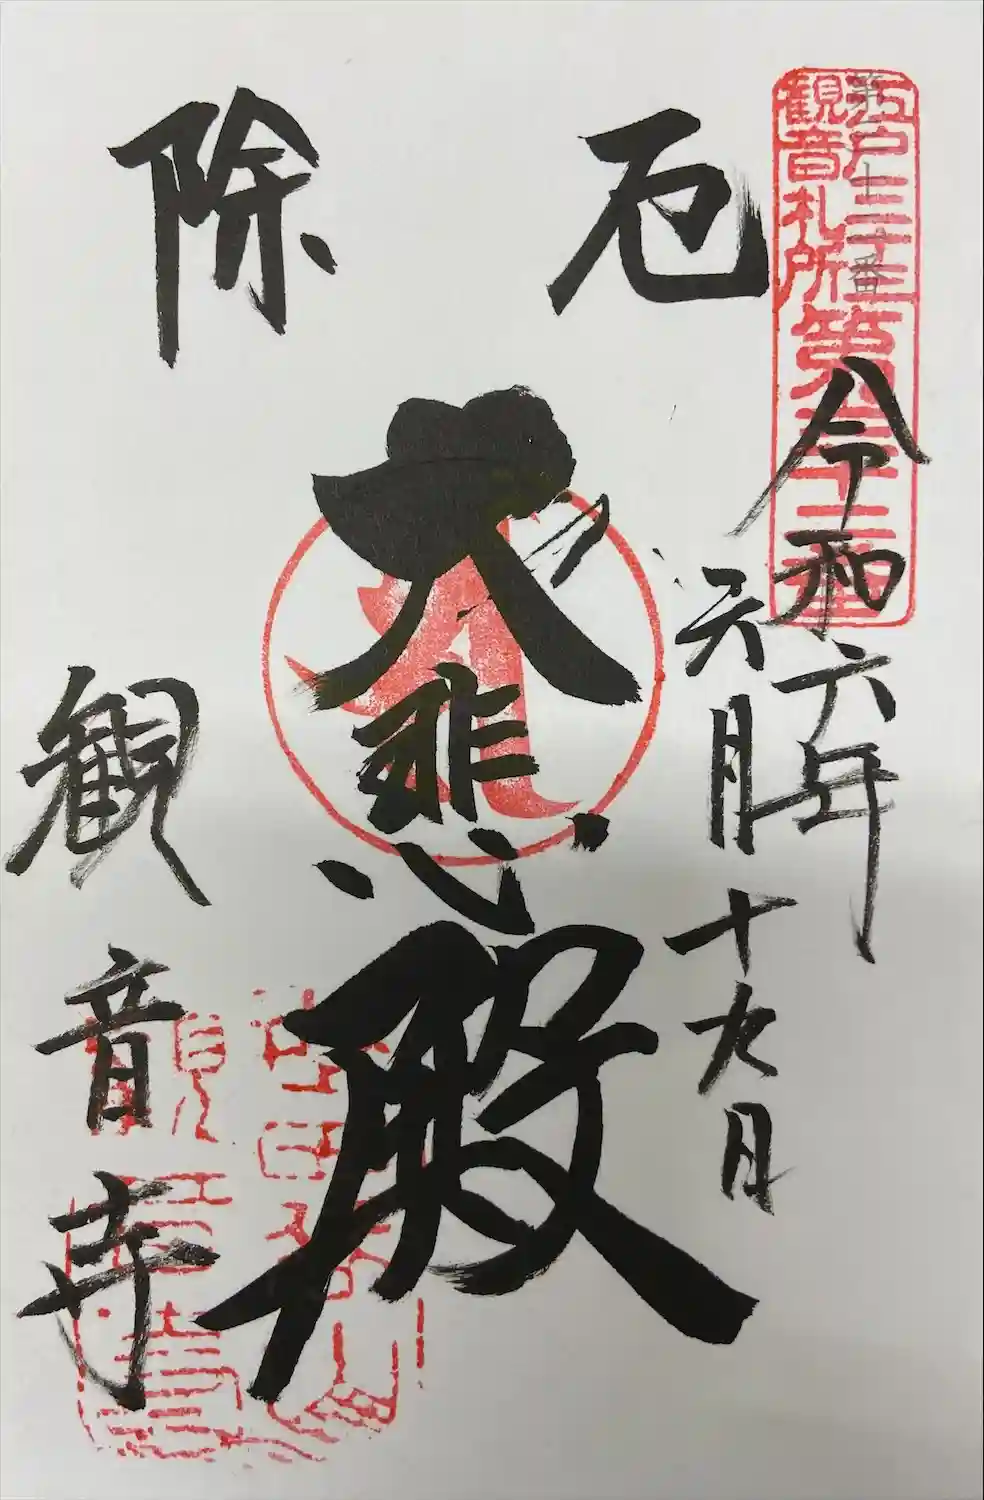 江戸三十三
観音札所
第三十二番
令和六年
月十九日
厄除
大悲殿
観音寺
世田谷山
観音寺